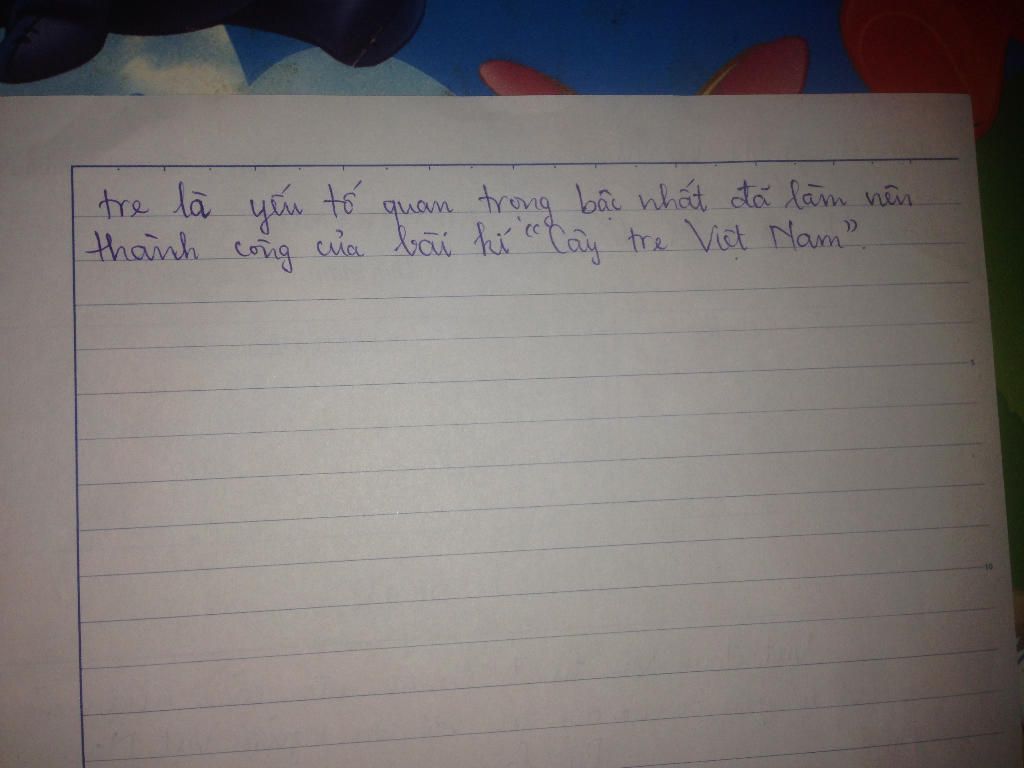 tre là yếu tố quan trọng bậc nhất đã làm nên
thành công của bài kí "Cây tre Việt Nam".
5
10